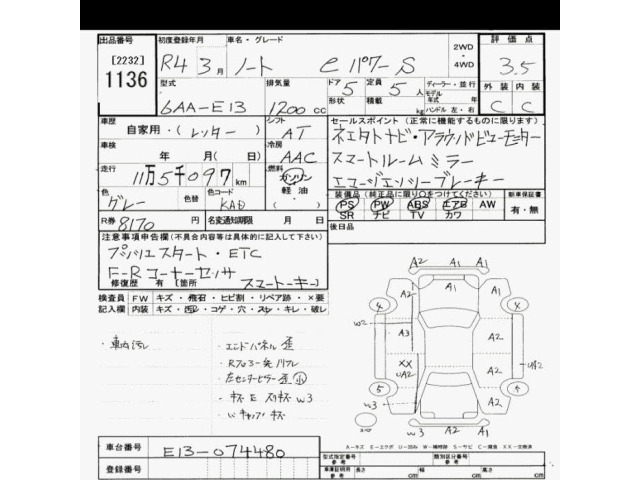 出品番号 初度登録年月 車名・グレード 2WD・4WD 評価点
[2232]
1136
R4 3月 ノート eパワーS 3.5
型式 排気量 ドア 定員 ディーラー・並行 外装 内装
6AA-E13 1200cc 5 5人 モデル年式 年
形状 積載 kg ハンドル 左・右 C C
車歴 シフト セールスポイント(正常に機能するものに限ります)
自家用・(レンター) AT
車検 冷房
年 月(日) AAC スマートルームミラー
走行 燃料 エマージェンシーブレーキ
11万5千097km ガソリン 軽油・ 装備品(純正品に限り○をつけてください) 新車保証書
色 色替 色コード PS PW ABS エアB AW 有・無
グレー KAD SR ナビ TV カワ
R券 8170円 名変通知期限 月 日 後日品
注意事項申告欄(不具合内容等は具体的に記入して下さい)
プッシュスタート・ETC
F-Rコーナーセンサ
修復歴 有[箇所 スマートキー]
検査員 FW キズ・飛石・ヒビ割・リペア跡・×要
記入欄 内装 キズ・汚レ・コゲ・穴・スレ・キレ・破レ
・車内汚レ
・エンドパネル歪
・左センターピラー歪 小
W3
A2 A1 A1
4 A2 A1 4
W2 A3 A2 A2
XX UA2 A2 UA2
5 A2 5
W3 A2 A1
A-キズ E-エクボ U-凹み W-補修跡 S-サビ C-腐食 XX-交換済
車台番号 E13-074480
型式指定番号 参考 類別区分番号 参考
登録番号 車庫証明用 参考 長さ 幅 高さ